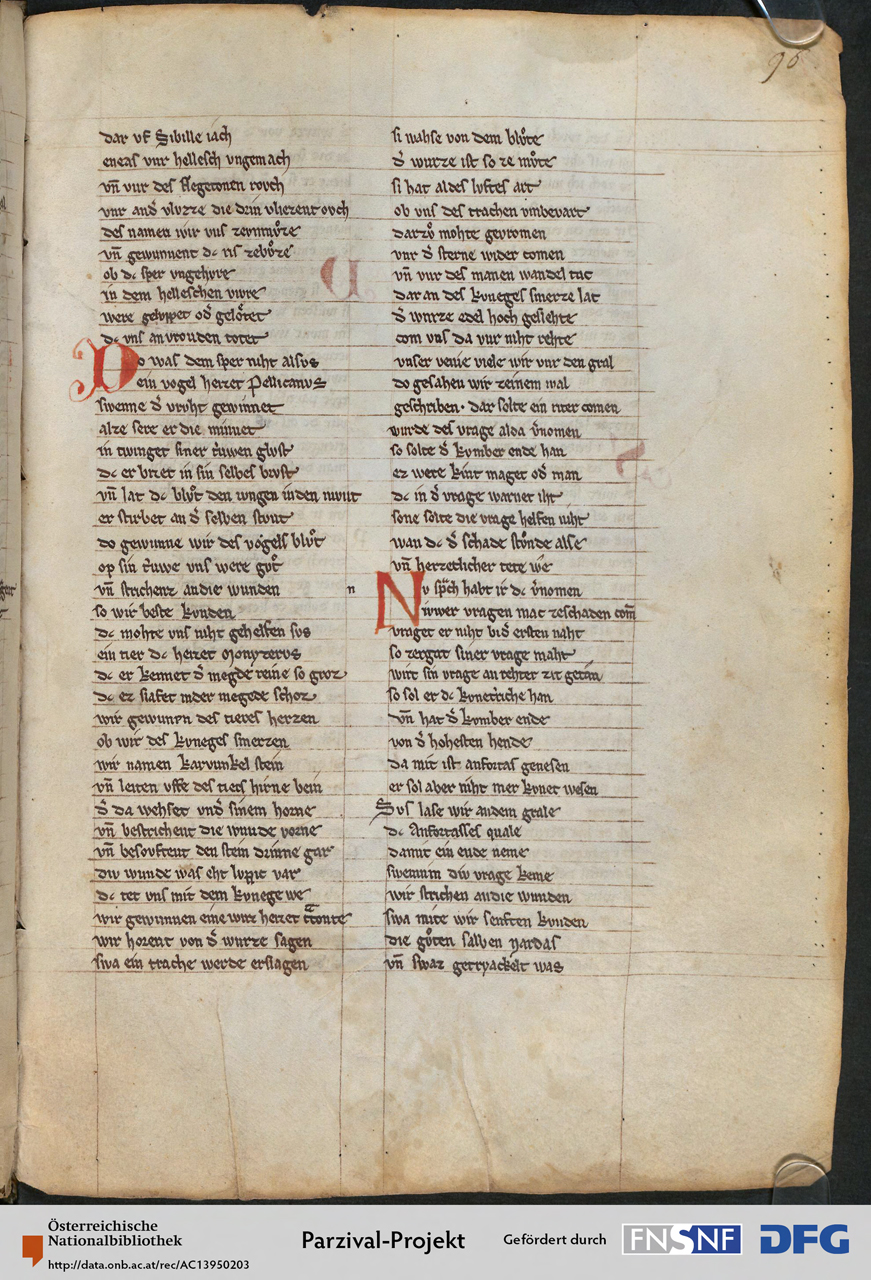 96
dar vf Sibille iach
eneas vur hellesch vngemach
vn̄ vur des flegetonen rovch
vur and̾ vluzze die drin vliezent ovch
des namen wir vns zevnmvͦze
vn̄ gewunnent dc ris zebvͦze
ob dc sper vngehvre
in dem helleschen vivre
were gelvppet od̾ gelötet
dc vns an vrouden totet
Do was dem sper niht alsvs
ein vogel heizet Pellicanvs
swenne d̾ vrvht gewinnet
alze sere er die minnet
in twinget siner trͥuwen glvst
dc er bizet in sin selbes brvst
vn̄ lat dc blvͦt den ivngen in den mvnt
er stirbet an d̾ selben stvnt
do gewunne wir des vogels blvͦt
op sin trͥuwe vns were gvͦt
vn̄ strichenz an die wunden
so wir beste kvnden
dc mohte vns niht gehelfen svs
ein tier dc heizet Monyzervs
dc er kennet d̾ megde reine so groz
dc ez slafet in der megede schoz
wir gewunnen des tieres herzen
ob wir des kvneges smerzen
wir namen karvunkel stein
vn̄ leiten vffe des tiers hirne bein
d̾ da wehset vnd̾ sinem horne
vn̄ bestrichent die wunde vorne
vn̄ besovftent den stein drinne gar
div wunde was eht lvppic var
dc tet vns mit dem kvnege we
wir gewunnen eine wurz heizet trͣconte
wir horent von d̾ wurze sagen
swa ein trache werde erslagen
si wahse von dem blvͦte
d̾ wurze ist so ze mvͦte
si hat aldes lvftes art
ob vns des trachen vmbevart
darzvͦ mohte gevromen
vur d̾ sterne wider comen
vn̄ vur des manen wandel tac
dar an des kvneges smerze lac
d̾ wurze edel hoch geslehte
com vns da vur niht rehte
vnser venie viele wir vur den gral
do gesahen wir zeinem mal
geschriben · dar solte ein riter comen
wurde des vrage alda v̾nomen
so solte d̾ kvmber ende han
ez were kint maget od̾ man
dc in d̾ vrage warnet iht
sone solte die vrage helfen niht
wan dc d̾ schade stvͦnde alse
vn̄ herzetlicher tete we
n
Nv sprͣch habt ir dc v̾nomen
iuwer vragen mac zeschaden com̄
vraget er niht bi d̾ ersten naht
so zergat siner vrage maht
wirt sin vrage an rehter zit getan
so sol er dc kvnecriche han
vn̄ hat d̾ kvmber ende
von d̾ hohesten hende
da mit ist anfortas genesen
er sol aber niht mer kvnec wesen
Svs lase wir an dem grale
dc Anfortasses quale
da mit ein ende neme
swenn im div vrage keme
wir strichen an die wunden
swa mite wir senften kvnden
die gvͦten salben nardas
vn̄ swaz gettryackelt was
Österreichische
Nationalbibliothek
http://data.onb.ac.at/rec/AC13950203
Parzival-Projekt
Gefördert durch
FNSNF
DFG